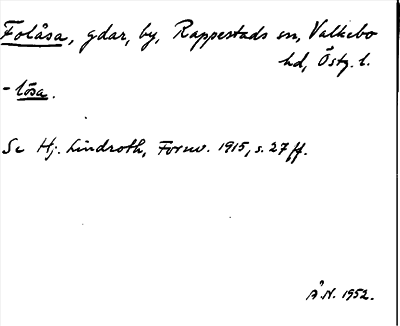 Folåsa, gdar, by, Rappestads sn, Valkebo
hd, Östg. l.
- låsa.
Se Hj. Lindroth, Fornv. 1915, s. 27 ff.
Å N. 1952.